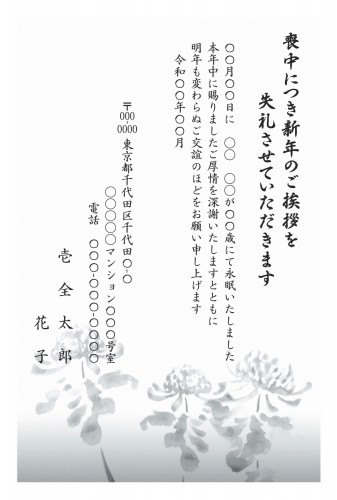 喪中につき新年のご挨拶を
失礼させていただきます
〇〇月〇〇日に　〇〇　〇〇が〇〇歳にて永眠いたしました
本年中に賜りましたご厚情を深謝いたしますとともに
明年も変わらぬご交誼のほどをお願い申し上げます
令和〇〇年〇〇月
〒000-0000 東京都千代田区千代田〇-〇
〇〇〇〇〇マンション〇〇〇号室
電話　〇〇〇-〇〇〇-〇〇〇〇
壱全太郎
花子